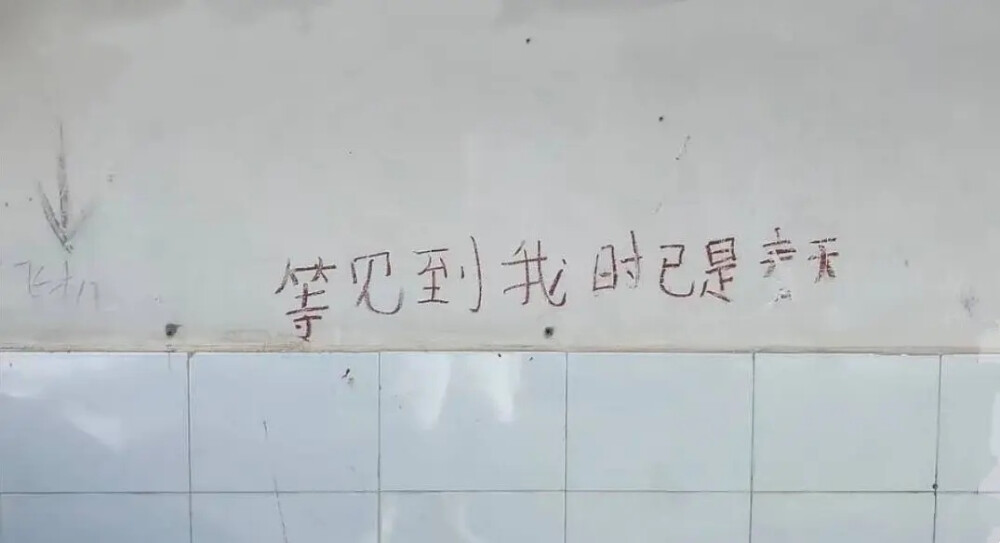 飞机
等见到我时已是六天